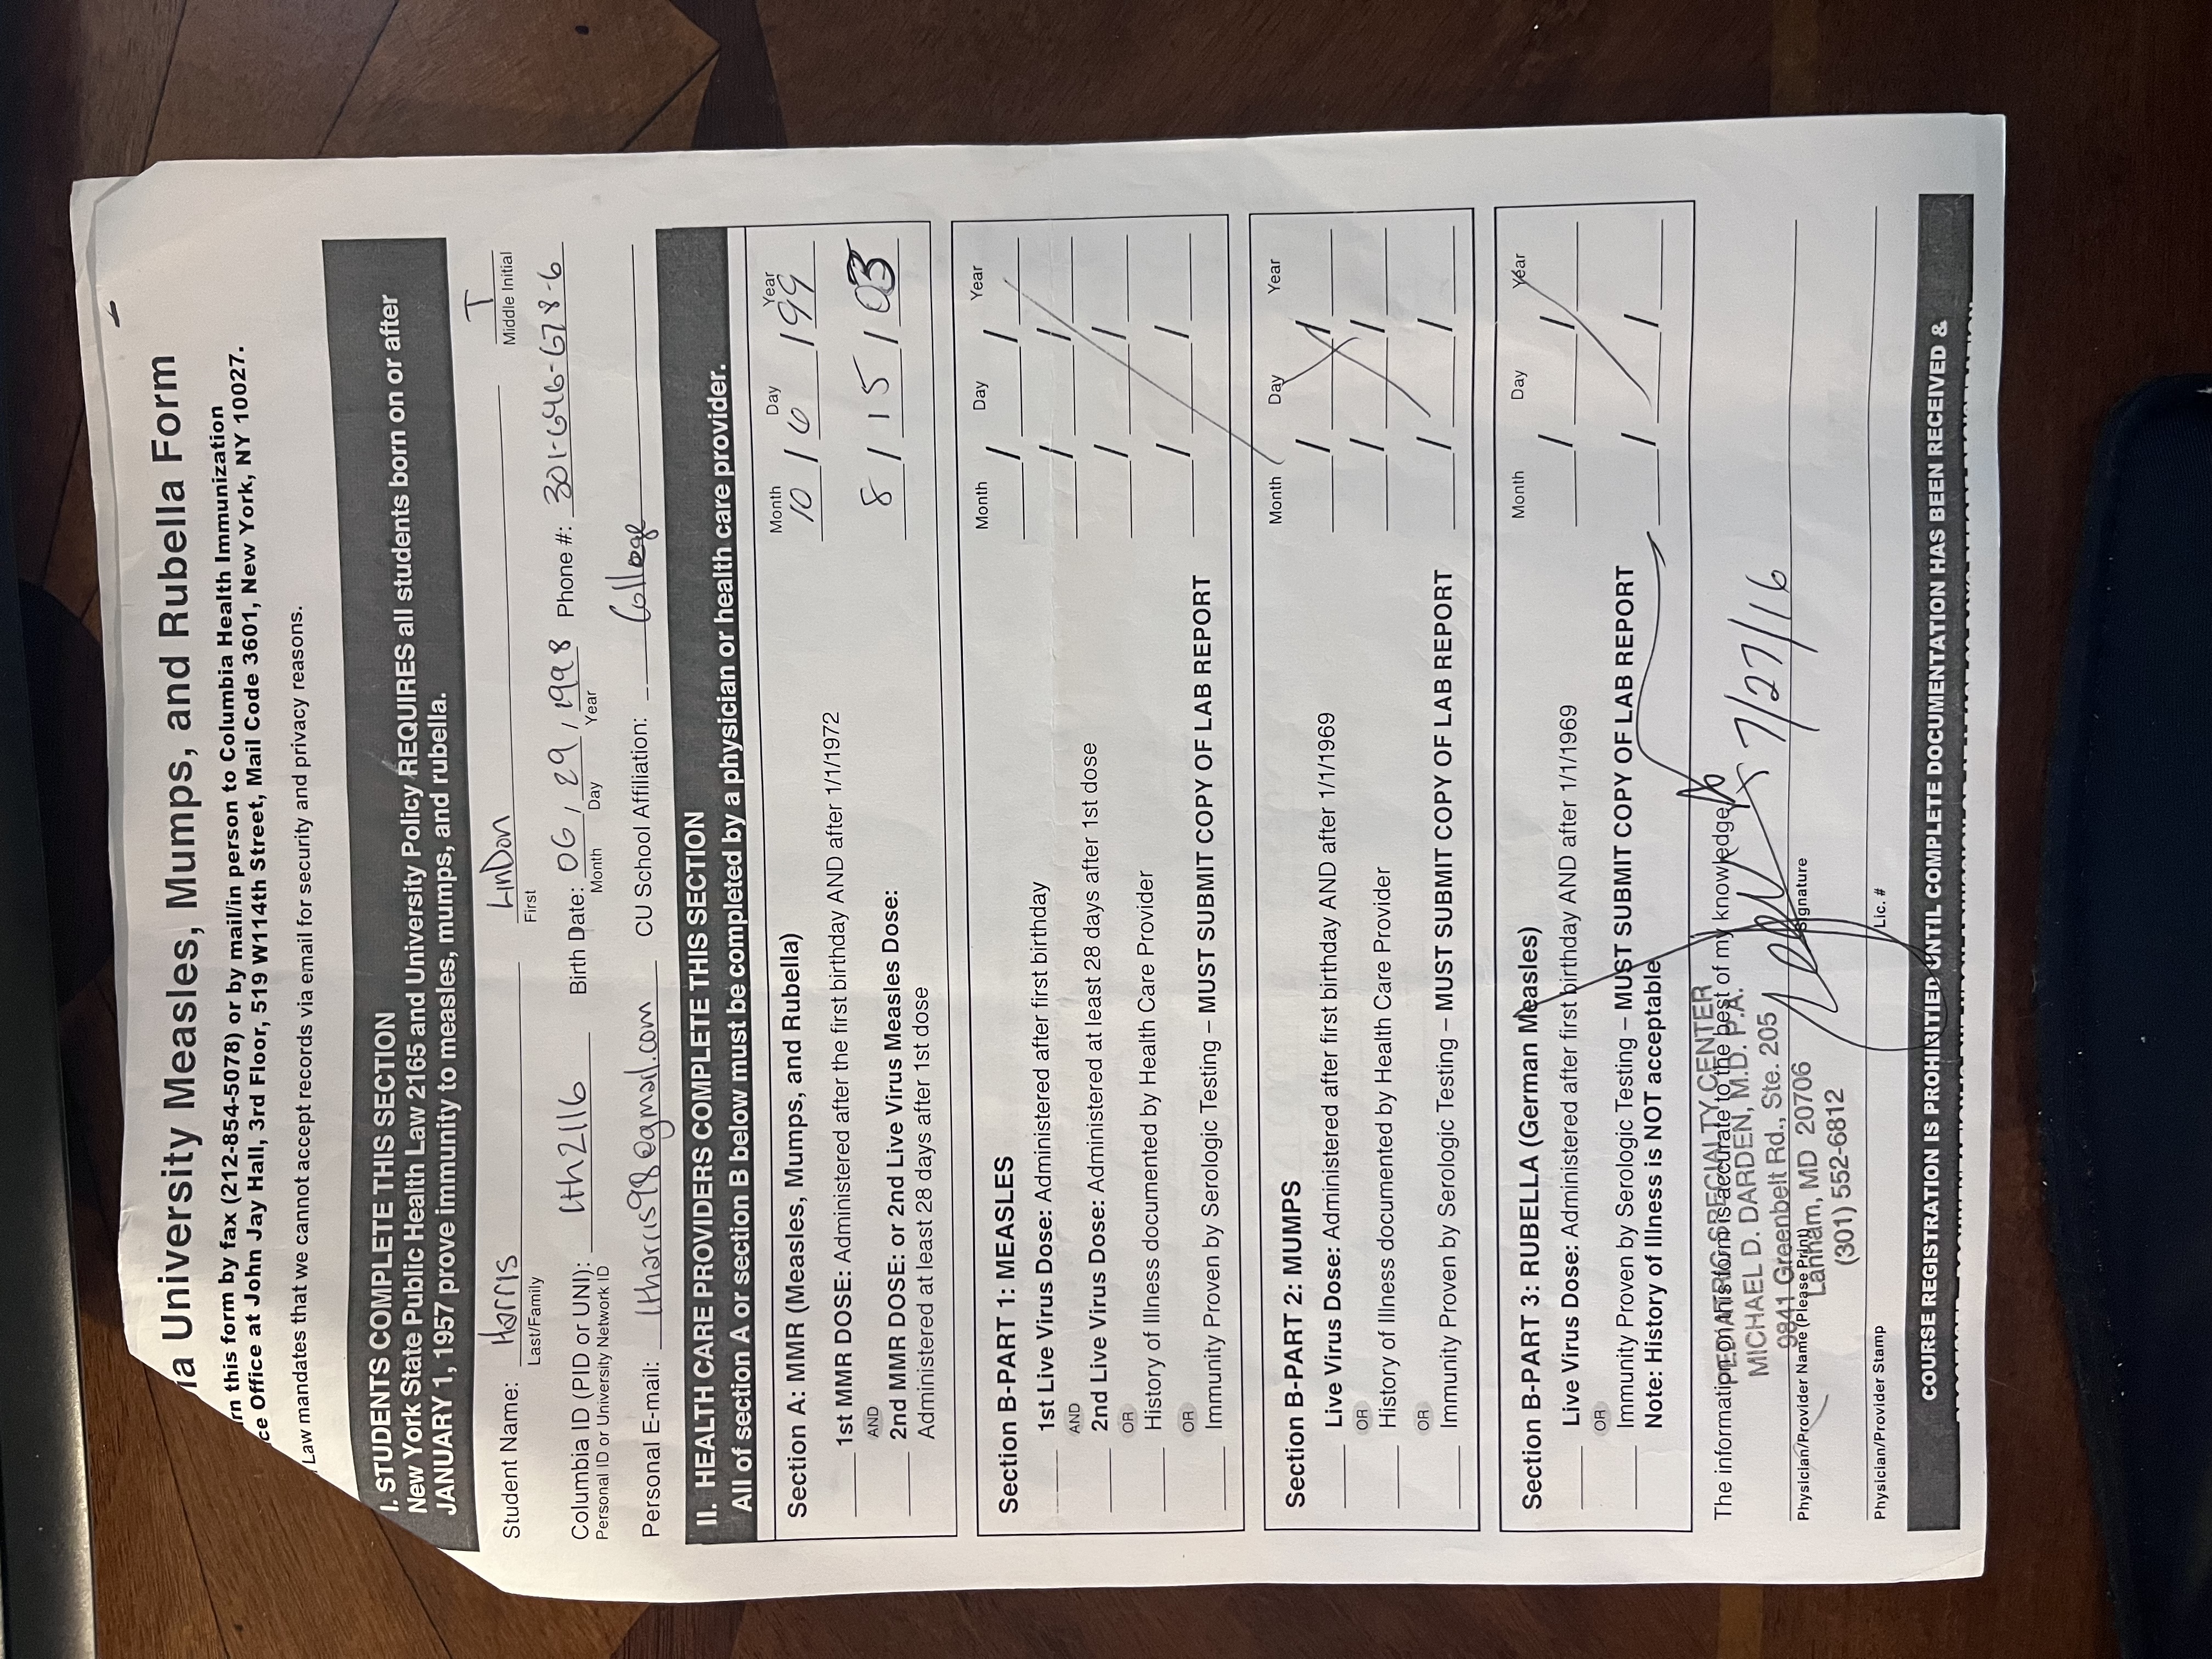 ia University Measles, Mumps, and Rubella Form
rn this form by fax (212-854-5078) or by mail/in person to Columbia Health Immunization
ce Office at John Jay Hall, 3rd Floor, 519 W114th Street, Mail Code 3601, New York, NY 10027.
Law mandates that we cannot accept records via email for security and privacy reasons.
I. STUDENTS COMPLETE THIS SECTION
New York State Public Health Law 2165 and University Policy REQUIRES all students born on or after
JANUARY 1, 1957 prove immunity to measles, mumps, and rubella.
Student Name: Harris LinDon T
Last/Family First Middle Initial
Columbia ID (PID or UNI): lth2116 Birth Date: 06 / 29 / 1998 Phone #: 301-646-678-6
Personal ID or University Network ID Month Day Year
Personal E-mail: ltharris98@gmail.com CU School Affiliation: College
II. HEALTH CARE PROVIDERS COMPLETE THIS SECTION
All of section A or section B below must be completed by a physician or health care provider.
Month Day Year
Section A: MMR (Measles, Mumps, and Rubella) 10 / 6 / 99
1st MMR DOSE: Administered after the first birthday AND after 1/1/1972
AND
2nd MMR DOSE: or 2nd Live Virus Measles Dose: 8 / 15 / 03
Administered at least 28 days after 1st dose
Month Day Year
Section B-PART 1: MEASLES / /
1st Live Virus Dose: Administered after first birthday / /
AND
2nd Live Virus Dose: Administered at least 28 days after 1st dose / /
OR
History of Illness documented by Health Care Provider
OR / /
Immunity Proven by Serologic Testing – MUST SUBMIT COPY OF LAB REPORT
Month Day Year
Section B-PART 2: MUMPS
Live Virus Dose: Administered after first birthday AND after 1/1/1969 / /
OR
History of Illness documented by Health Care Provider / /
OR
Immunity Proven by Serologic Testing – MUST SUBMIT COPY OF LAB REPORT / /
Month Day Year
Section B-PART 3: RUBELLA (German Measles)
Live Virus Dose: Administered after first birthday AND after 1/1/1969 / /
OR
Immunity Proven by Serologic Testing – MUST SUBMIT COPY OF LAB REPORT / /
Note: History of Illness is NOT acceptable
PEDIATRIC SPECIALTY CENTER
The information on this form is accurate to the best of my knowledge
MICHAEL D. DARDEN, M.D. P.A.
9841 Greenbelt Rd., Ste. 205 7/27/16
Physician/Provider Name (Please Print) Signature
Lanham, MD 20706
(301) 552-6812
Physician/Provider Stamp Lic. #
COURSE REGISTRATION IS PROHIBITIED UNTIL COMPLETE DOCUMENTATION HAS BEEN RECEIVED &